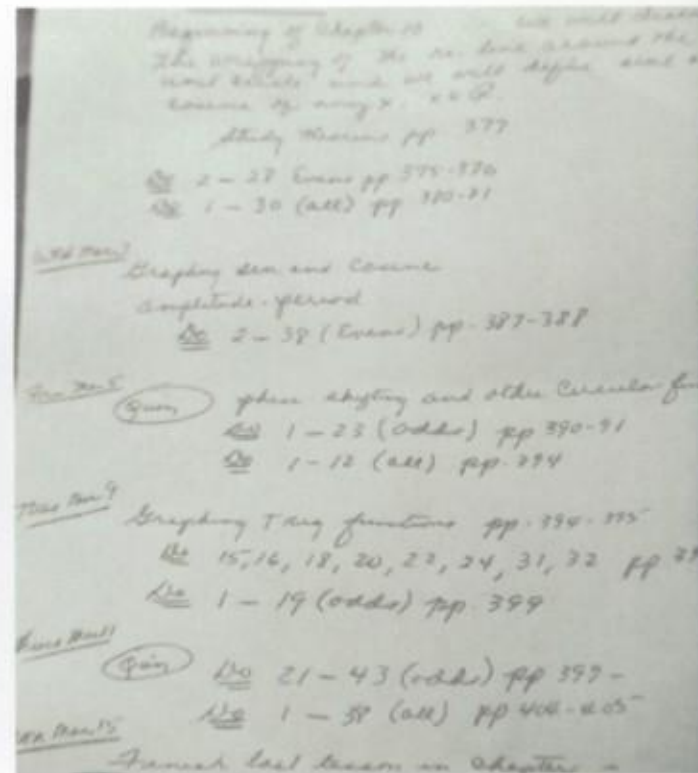 Beginning of Chapter 10 we will
The wrapping of the line around the
and we will define
cosine of any x. x ∈ R.
Study Theorems pp 377
Do 2 - 28 Evens pp 375-376
Do 1 - 30 (all) pp 380-81
Wed Mar 3
Graphing sin and Cosine
amplitude - period
Do 2 - 38 (Evens) pp. 387-388
Mar 5
Quiz phase shifting and other Circular
Do 1 - 23 (odds) pp 390-91
Do 1 - 12 (all) pp. 394
Tues Mar 9
Graphing Trig functions pp. 394-395
Do 15, 16, 18, 20, 22, 24, 31, 32 pp
Do 1 - 19 (odds) pp 399
Mar 11
Quiz Do 21 - 43 (odds) pp 399 -
Do 1 - 38 (all) pp 404-405
Mon Mar 15
Finish last lesson in chapter -